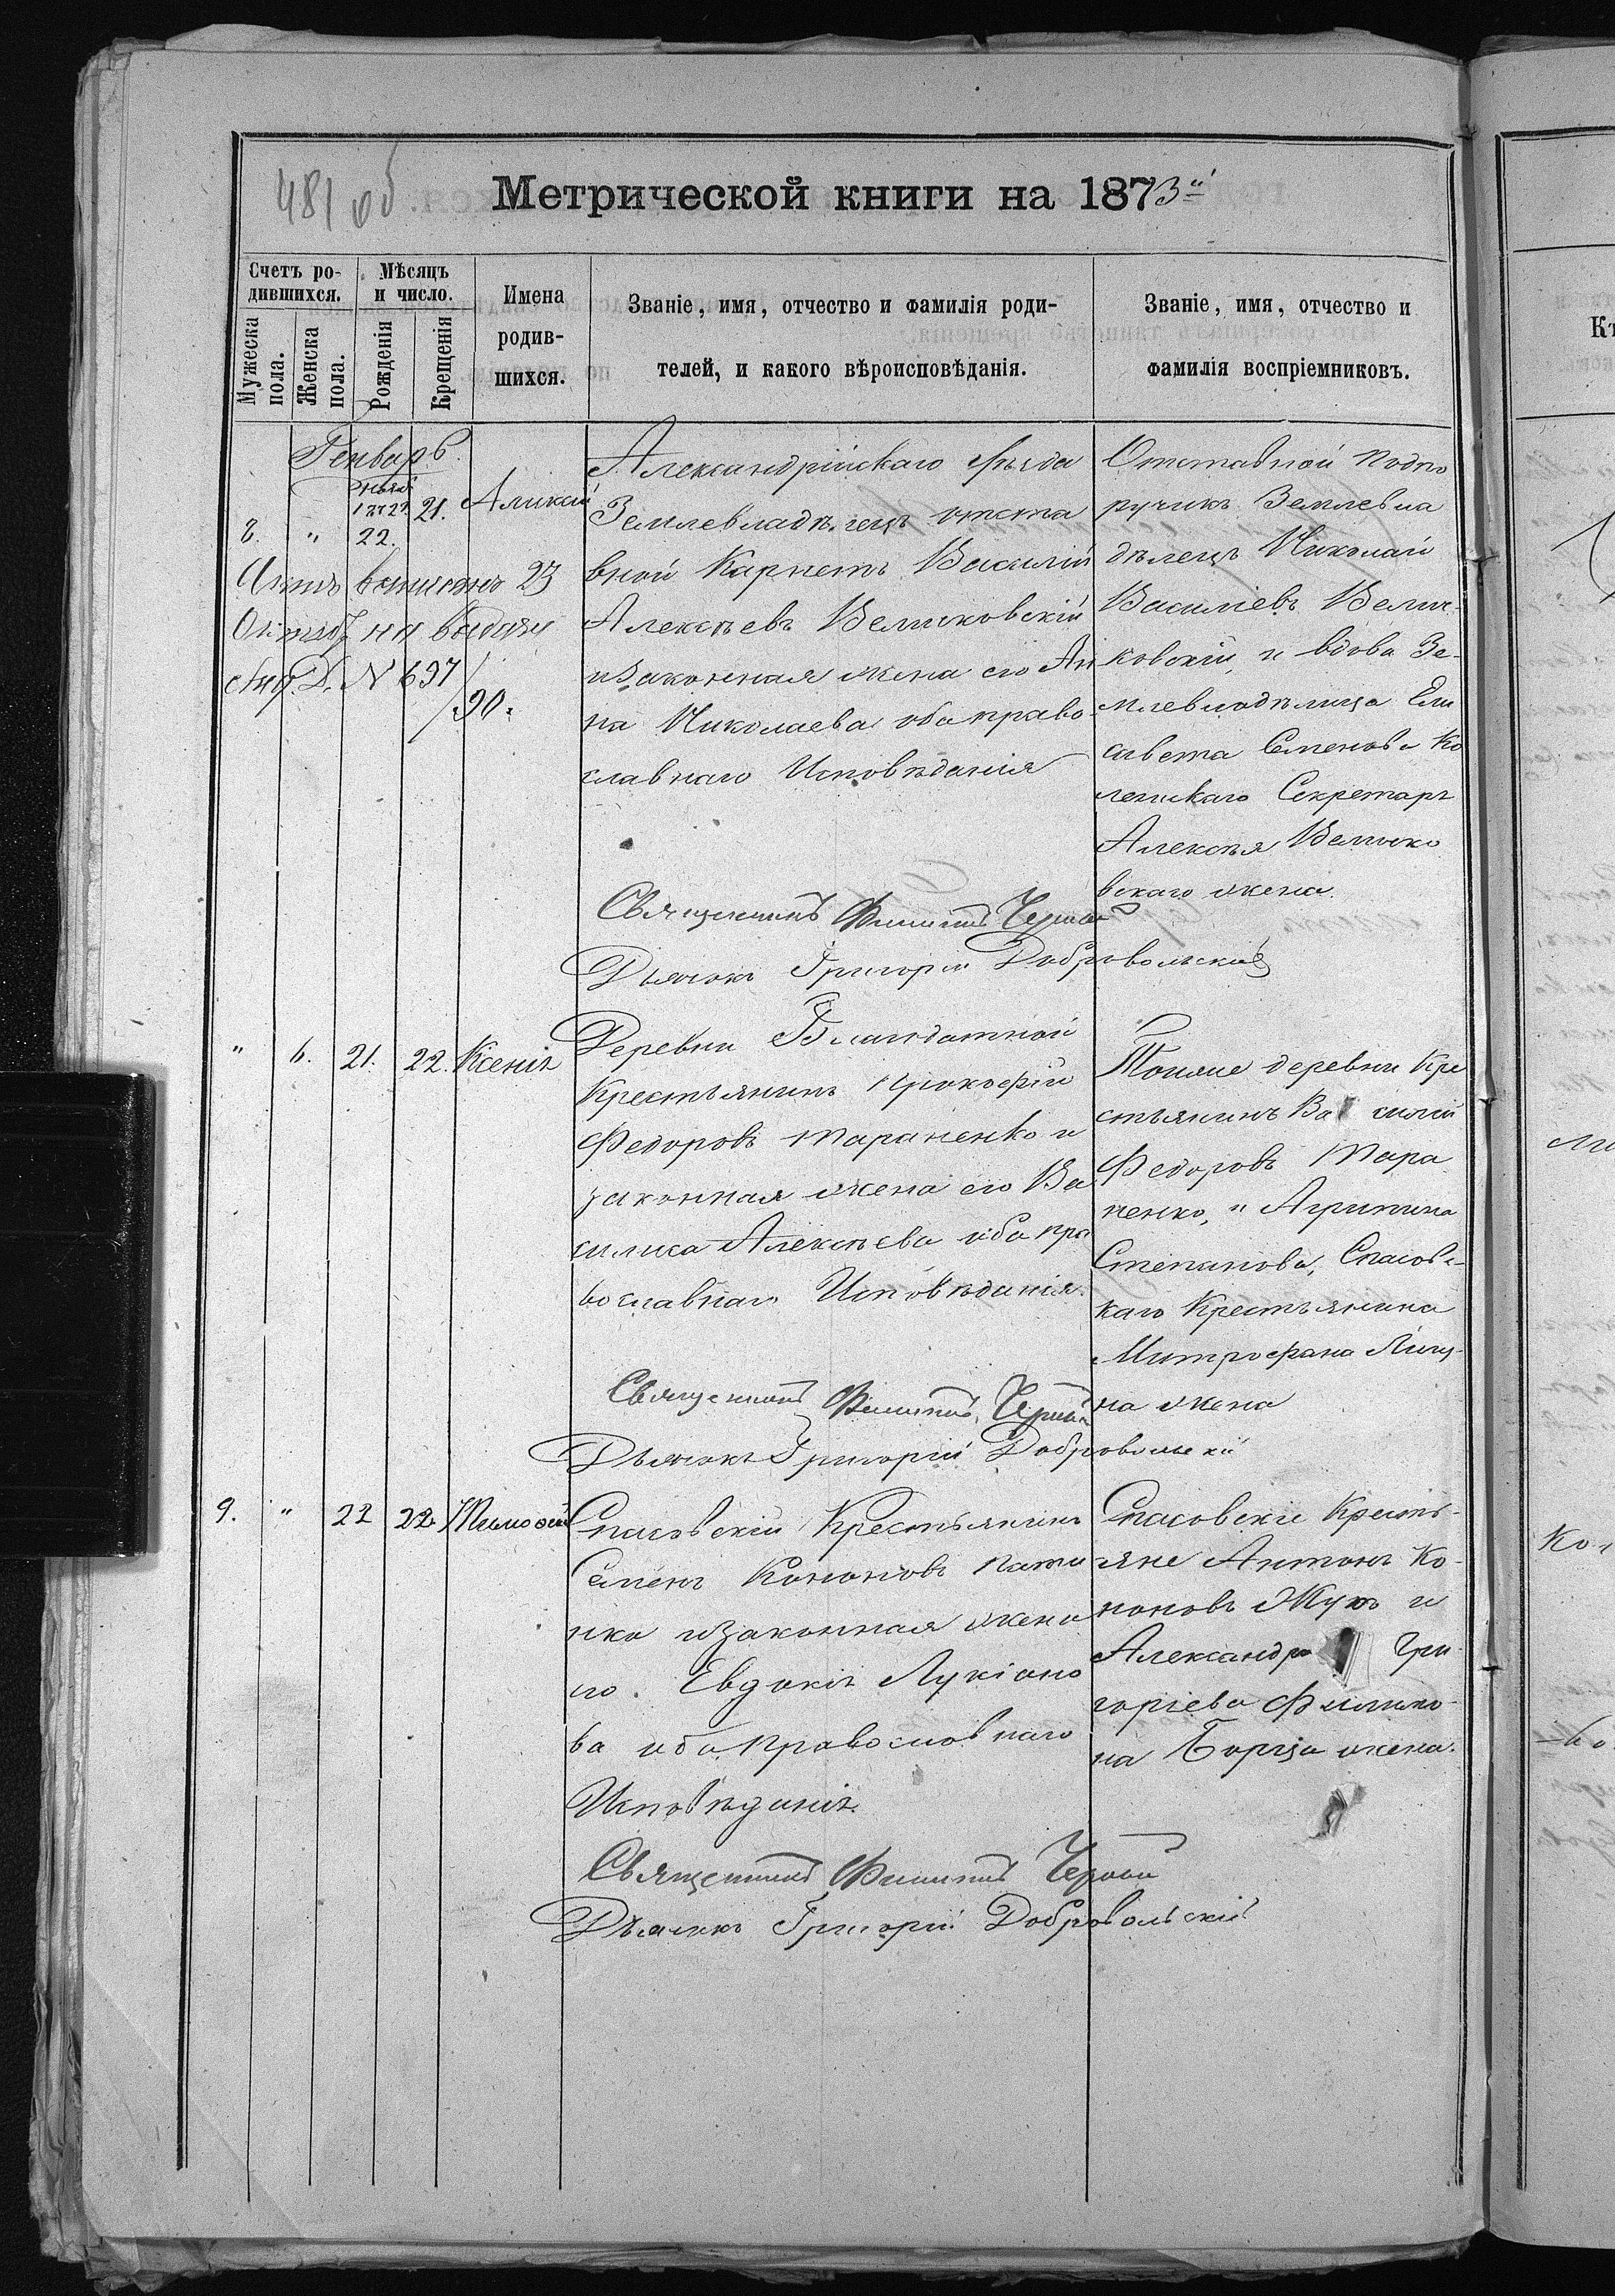 481 об
Метрической книги на 1873й
Счетъ ро-
дившихся.
Мужеска
пола.
Женска
пола.
Мѣсяцъ
и число.
Рожденія
Крещенія
Имена
родив-
шихся.
Званіе, имя, отчество и фамилія роди-
телей, и какого вѣроисповѣданія.
Званіе, имя, отчество и
фамилія воспріемниковъ.
Генварь.
8. " 1872 22. 21. Аликсій
Актъ выписанъ 23
на выдачи
N 637/90.
Александрійскаго уѣзда
Землевладѣлецъ отста
вной Карнетъ Василій
Алексѣевъ Величковскій
и законная жена его Ан
на Николаева оба право
славнаго Исповѣданія
Отставной Подпо
ручикъ Землевла
дѣлецъ Николай
Василіевъ Велич-
ковскій, и вдова Зе-
млевладѣлица Ели
савета Семенова Ко
лежскаго Секретаря
Алексѣя Величко
вскаго жена.
Священникъ Филиппъ
Дьячокъ Григорій Добровольскій
" 6. 21. 22. Ксенія
Деревни Благодатной
Крестьянинъ Прокофій
Федоровъ Тараненко и
законная жена его Ва
силиса Алексѣева оба пра
вославнаго Исповѣданія.
Тойже деревни Кре
стьянинъ Василій
Федоровъ Тара
ненко, и Агрипина
Степанова, Спасовс-
каго Крестьянина
Митрофана
на жена
Священникъ Филиппъ
Дьячокъ Григорій Добровольскій
9. " 22 22 Тимофей
Спасовскій Крестьянинъ
Семенъ Кононовъ
нко и законная жена
его Евдокія Лукіано
ва оба православнаго
Исповѣданія.
Спасовскіе Кресть-
яне Антонъ Ко-
ноновъ Жукъ и
Александра Гри-
горіева Филимо-
на Борща жена.
Священникъ Филиппъ
Дьячокъ Григорій Добровольскій